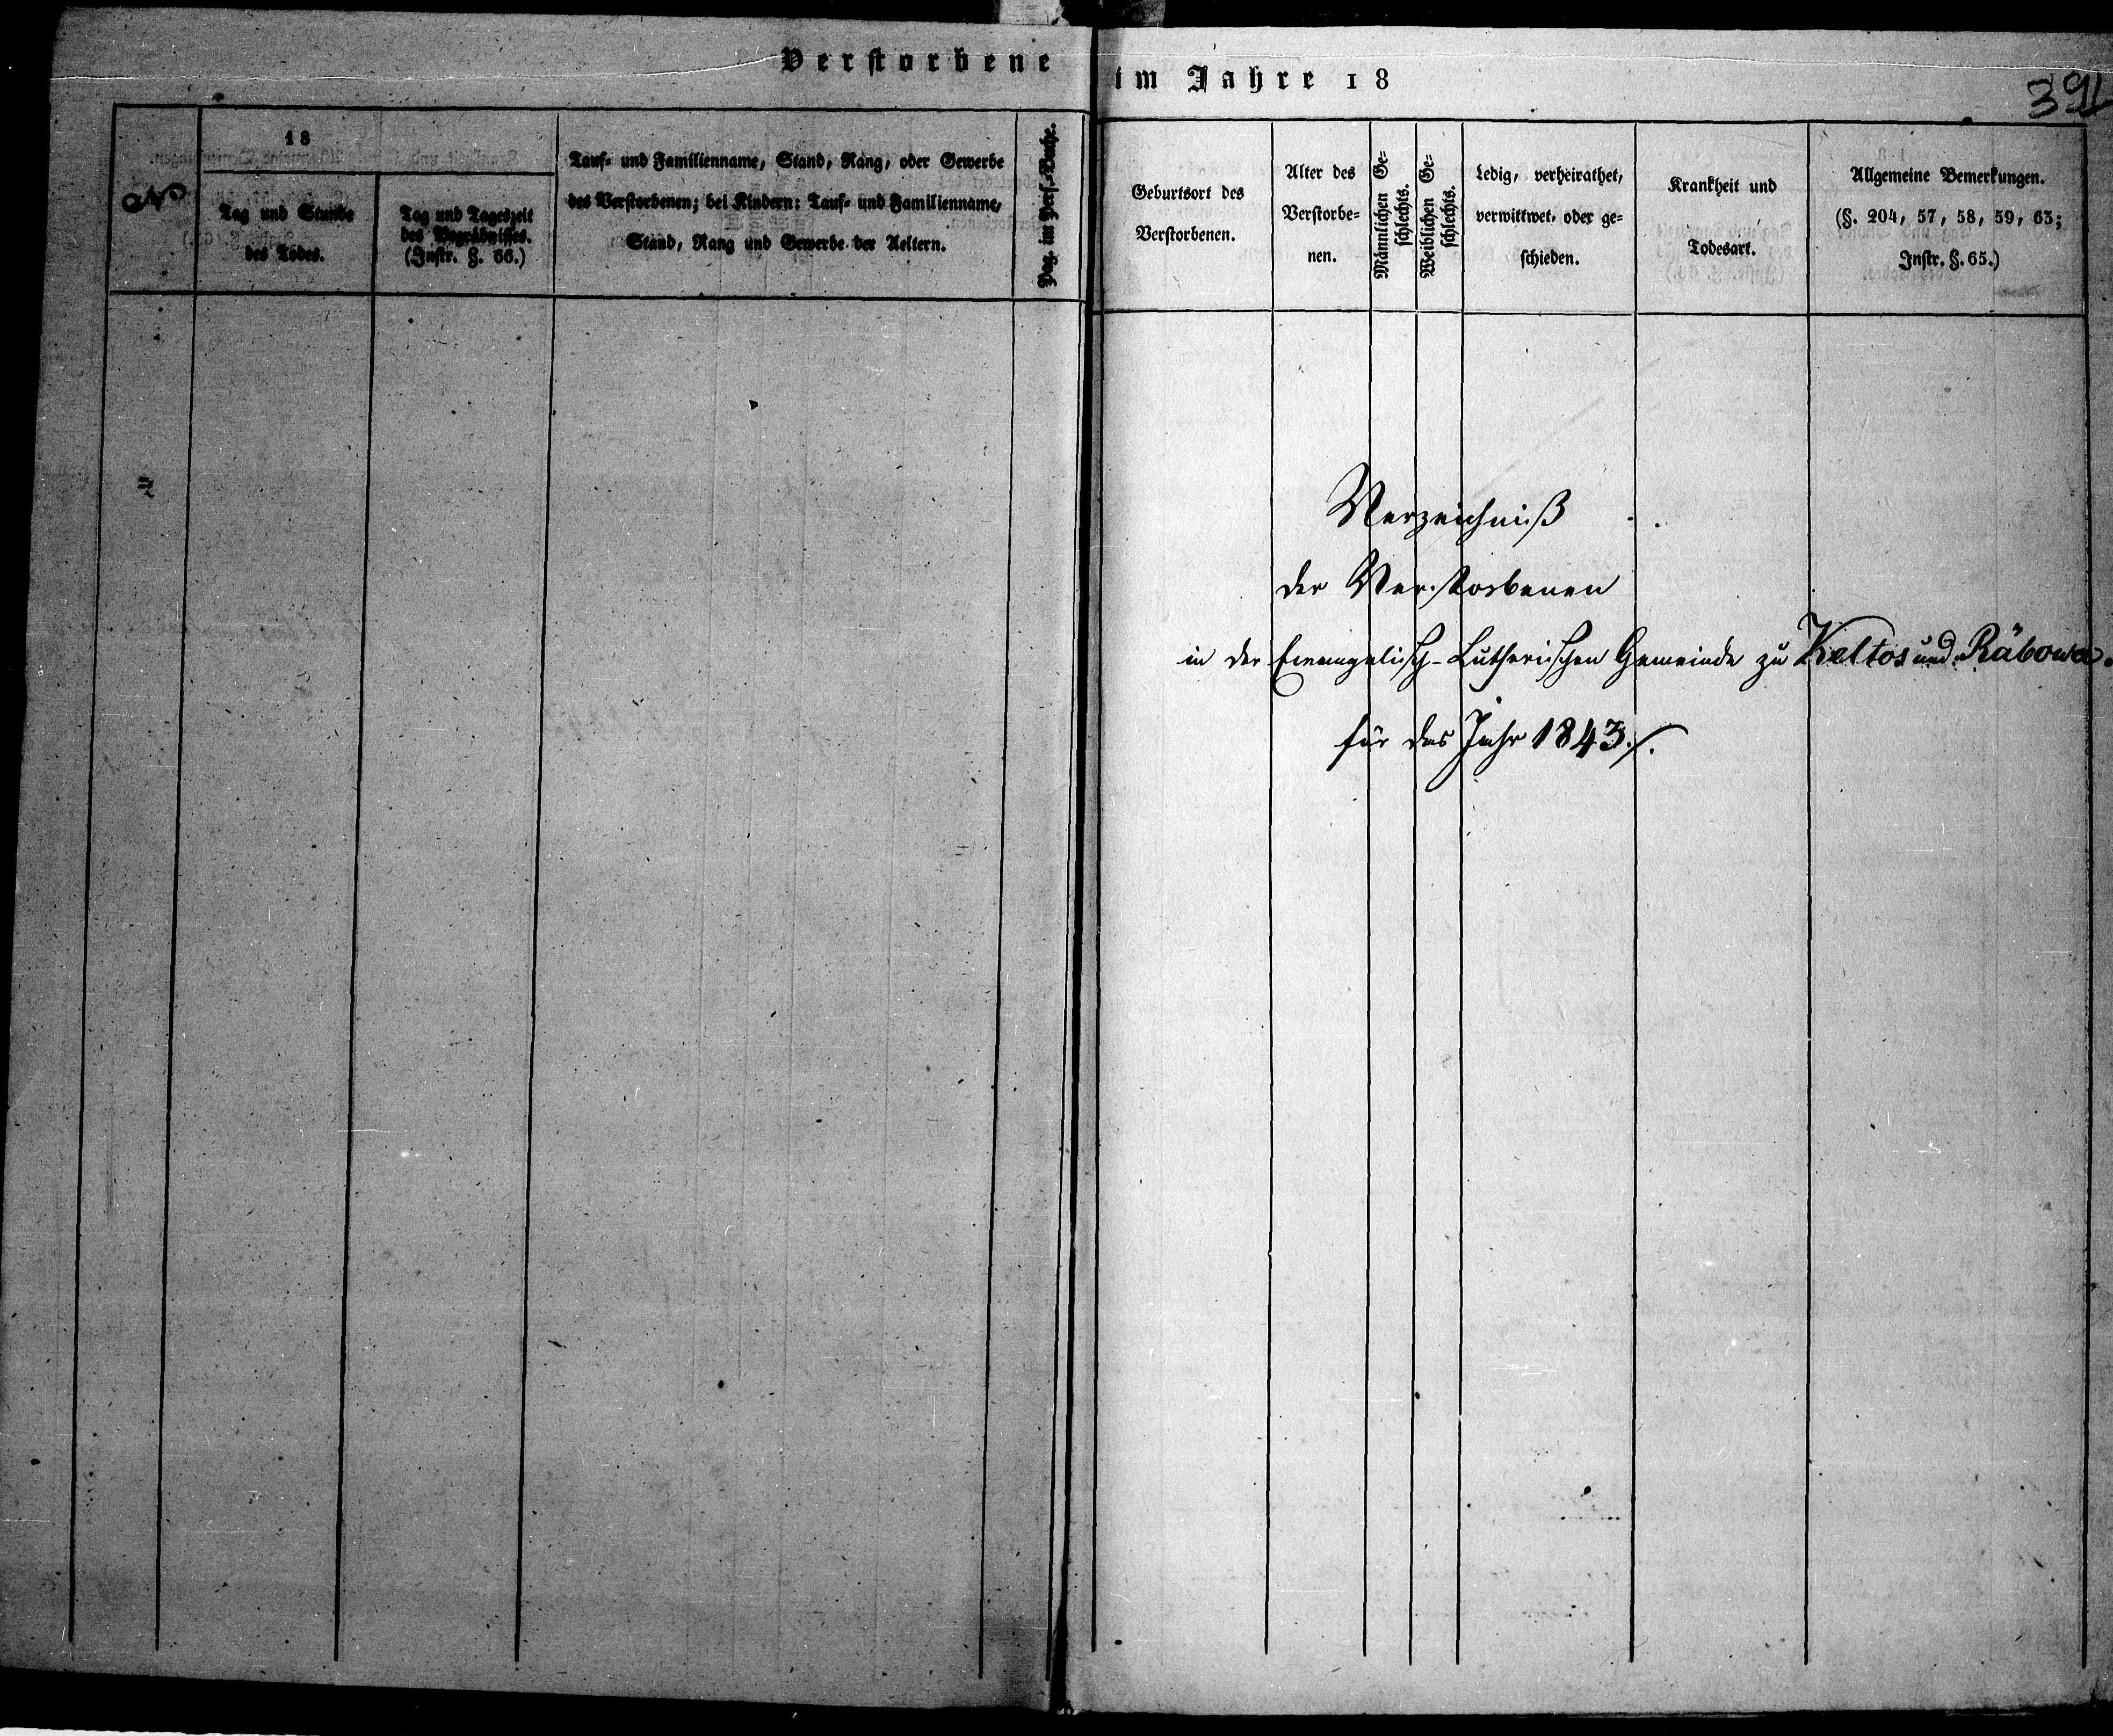 Verstorbene im Jahre 18
391
№
18
Tag und Stunde
des Todes.
Tag und Tageszeit
des Begräbnisses.
(Instr. §. 66.)
Tauf- und Familienname, Stand, Rang, oder Gewerbe
des Verstorbenen; bei Kindern: Tauf- und Familienname,
Stand, Rang und Gewerbe der Aeltern.
Pag. im Pers.-Buche.
Geburtsort des
Verstorbenen.
Alter des
Verstorbe-
nen.
Männlichen Ge-
schlechts.
Weiblichen Ge-
schlechts.
Ledig, verheirathet,
verwittwet, oder ge-
schieden.
Krankheit und
Todesart.
Allgemeine Bemerkungen.
(§. 204, 57, 58, 59, 63;
Instr. §. 65.)
Verzeichniß
der Verstorbenen
in der Evangelisch-Lutherischen Gemeinde zu Keltos und Räbowa.
für das Jahr 1843./.